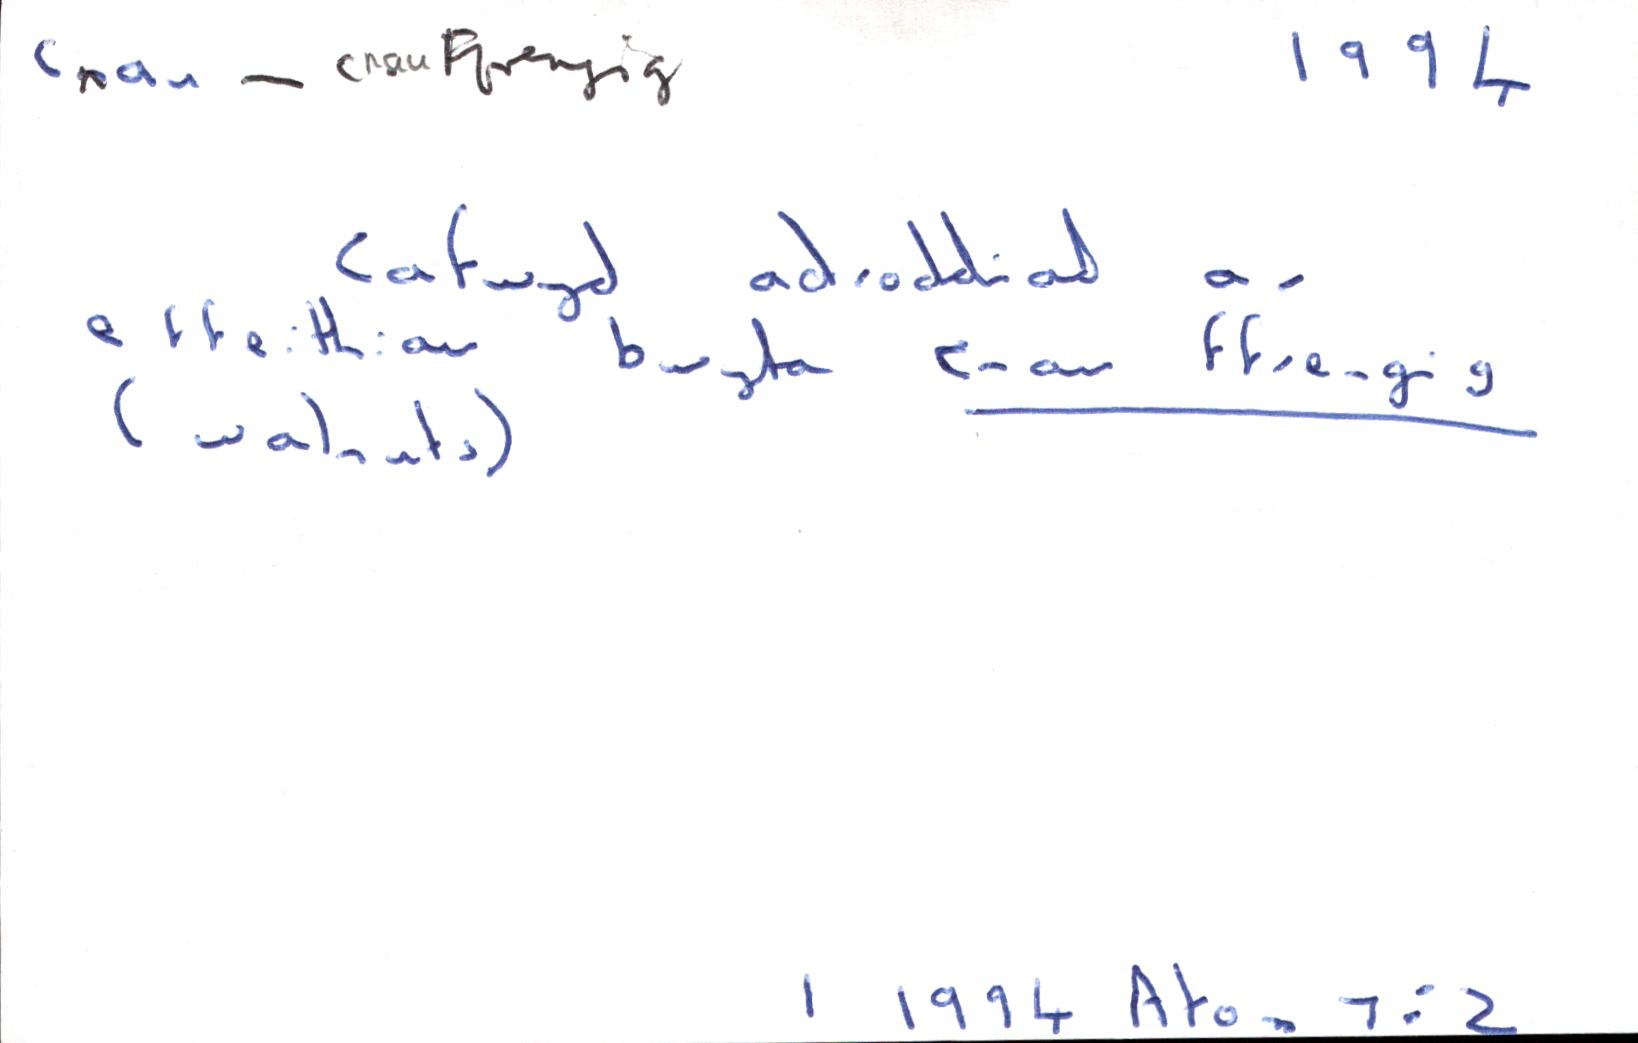 cnau — cnau Ffrengig 1994
Cafwyd adroddiad ar
effeithiau bwyta cnau ffrengig
(walnuts)
1 1994 Aton 7:2